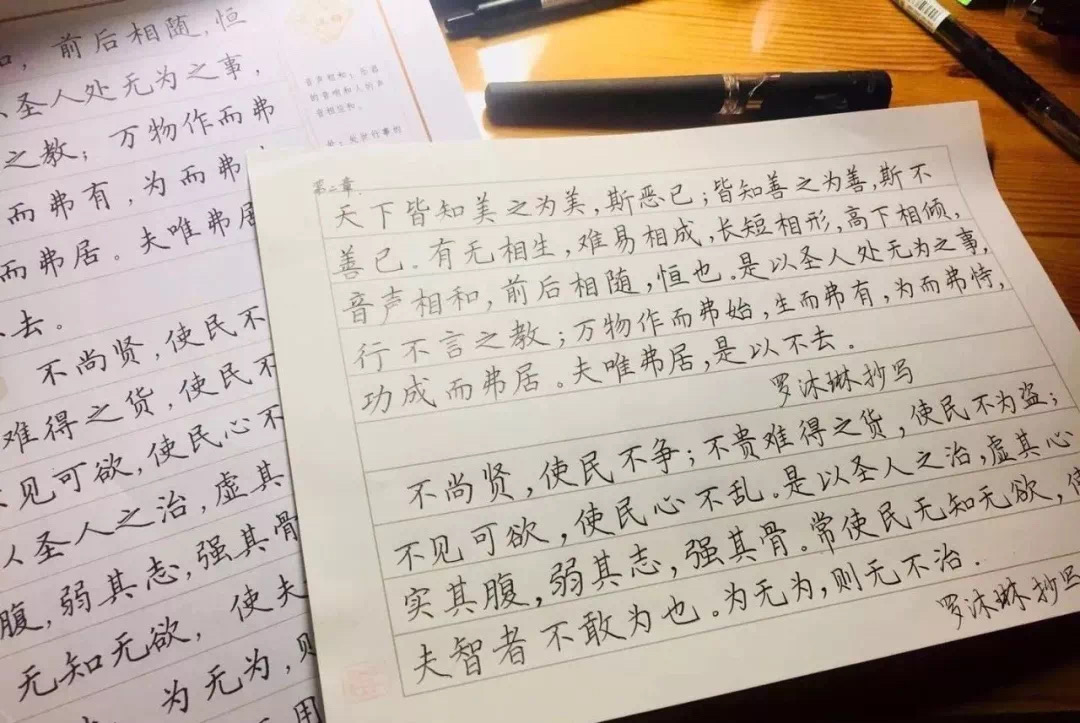 和，前后相随，恒
圣人处无为之事，
之教；万物作而弗
而弗有，为而弗
而弗居。夫唯弗居
去。
不尚贤，使民不
难得之货，使民不
见可欲，使民心不
圣人之治，虚其
腹，弱其志，强其骨
无知无欲，使夫
为无为，则
用
音声相和：乐器
的音响和人的声
音相应和。
第二章.
天下皆知美之为美，斯恶已；皆知善之为善，斯不
善已。有无相生，难易相成，长短相形，高下相倾，
音声相和，前后相随，恒也。是以圣人处无为之事，
行不言之教；万物作而弗始，生而弗有，为而弗恃，
功成而弗居。夫唯弗居，是以不去。
罗沐琳抄写
不尚贤，使民不争；不贵难得之货，使民不为盗；
不见可欲，使民心不乱。是以圣人之治，虚其心
实其腹，弱其志，强其骨。常使民无知无欲，使
夫智者不敢为也。为无为，则无不治.
罗沐琳抄写